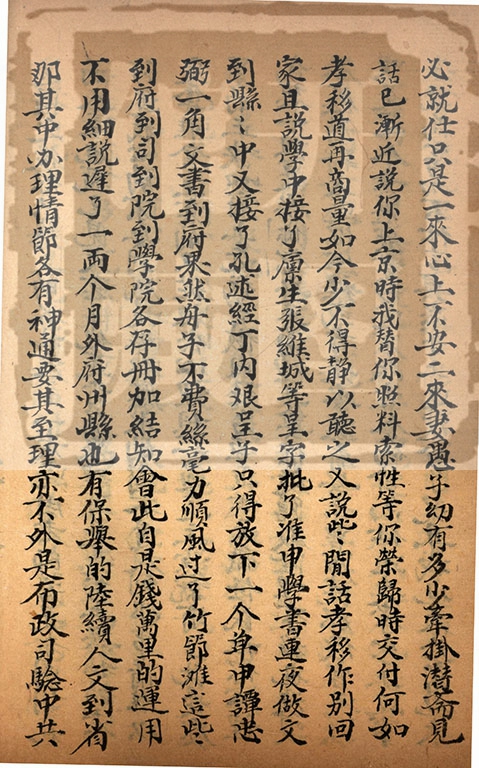 必就仕只是一來心上不安二來妻愚子幼有多少牽掛潛斎見
話已漸近說你上京時我替你照料索性等你榮歸時交付何如
孝移道再商量如今少不得静以聽之又説些〻閒話孝移作別回
家且説學中接了廪生張維城等呈字批了准申學書連夜做文
到縣〻中又接了孔述經丁内艱呈子只得放下一个单申譚忠
弼一角文書到府果然舟子不費絲毫力順風过了竹節灘這些〻
到府到司到學院各存冊加結知會此自是錢萬里的運用
不用細説遲了一兩个月外府州縣也有保舉的陸續人文到省
那其中办理情節各有神通要其至理亦不外是布政司驗中共